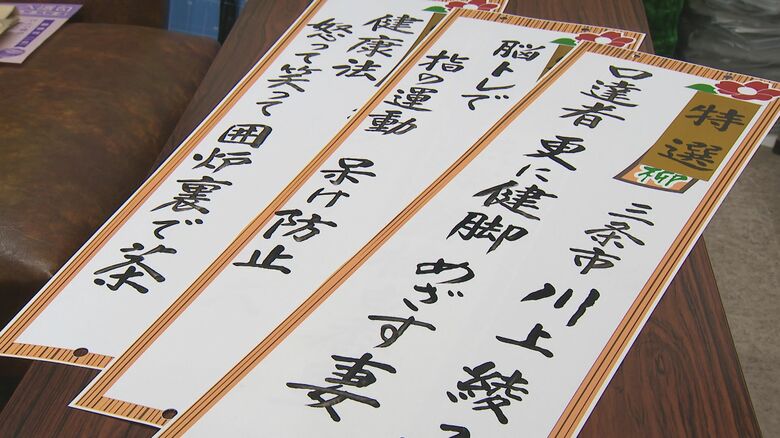 特選
柳
三条市 川上 綾
口達者 更に健脚 めざす妻
脳トレで
指の運動 呆け防止
健康法
怒って笑って囲炉裏で茶